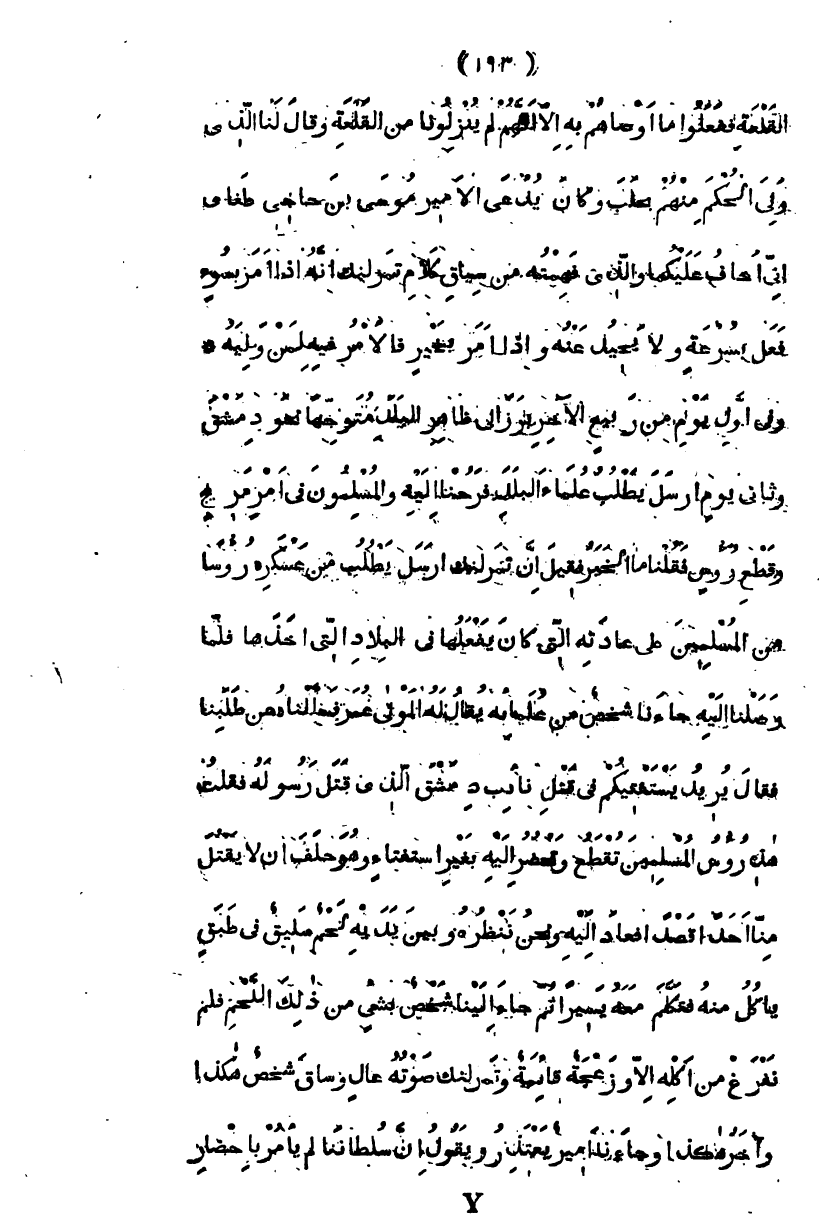 (١٩٣)
القَلْعَةِ فَفَعَلُوا ما اَوْصاهُم به اِلاَّ اَنَّهُمْ لم يُنْزِلُونا من القَلْعَةِ وقالَ لَنا الّذى
وَلِىَ الحُكْمَ مِنْهُمْ بحَلَبَ وكانَ يُدْعَى الاَمير مُوسَى بنَ حاجى طَغاى
انِّى اَخافُ عَلَيْكُما والّذى فَهِمْتُه من سِياقِ كَلامِ تمرلنك انَّهُ اذا اَمَرَ بسُوءٍ
فَعَل بسُرْعَةٍ ولا يُحِيدُ عَنْهُ واذا اَمَر بخَيْرٍ فالاَمْرُ فيه لِمَنْ وَلِيَهُ *
وفى اَوَّلِ يَوْمٍ من رَبيعِ الآخِرِ بَرَزَ الى ظاهِرِ البَلَدِ مُتَوَجِّهًا نحْوَ دِمَشْقَ
وثانى يومٍ ارسَلَ يَطْلُبُ عُلَماءَ البلَدِ فرُحْنا اِلَيْهِ والمُسْلِمُونَ فى اَمْرٍ مَرِيجٍ
وقَطْعِ رُؤسٍ فَقُلْنا ما الخَبَرُ فقيلَ اِنَّ تمَرلنك ارسَلَ يَطْلُبُ مِن عَسْكَرِه رُؤسًا
من المُسْلِمِينَ على عادَتِه الّتى كانَ يَفْعَلُها فى البلادِ الّتى اخَذَها فلَمّا
وَصَلْنا اِلَيْهِ جاءَنا شَخْصٌ من عُلَمائِه يُقالُ لَهُ المَوْلى عُمَرَ فسَأَلْناهُ عن طَلَبِنا
فقالَ يُريدُ يَسْتَفْتِيكُمْ فى قَتْلِ نائبِ دِمَشْقَ الّذى قَتَلَ رَسُولَهُ فقلتُ
هٰذِه رُؤُسُ المُسْلِمِينَ تقْطَعُ وتحْضَرُ اِلَيْهِ بغَيْرِ استفتاءٍ وهُوَ حَلَفَ اَن لا يَقْتُلَ
مِنّا اَحَدًا قَصْدًا فعادَ اِلَيْهِ ونحنُ نَنْظُرُهُ وبينَ يَدَيْهِ لَحْمٌ سَلِيقٌ فى طَبَقٍ
ياْكُلُ منهُ فتَكَلَّمَ مَعَهُ يَسِيرًا ثُمَّ جاءَ اِلَيْنا شَخْصٌ بشَىْءٍ من ذٰلِكَ اللَّحْمِ فلم
نَفْرَغْ من اَكْلِه اِلاّ وزَعْجَةٌ قائِمَةٌ وتمرلنك صَوْتُهُ عالٍ وساقَ شخصٌ هٰكَذا
وآخَرُ هٰكذا وجاءَنا اَميرٌ يَعْتَذِرُ ويَقُولُ اِنَّ سُلطانَنا لم يأمُرْ باِحْضارِ
٧